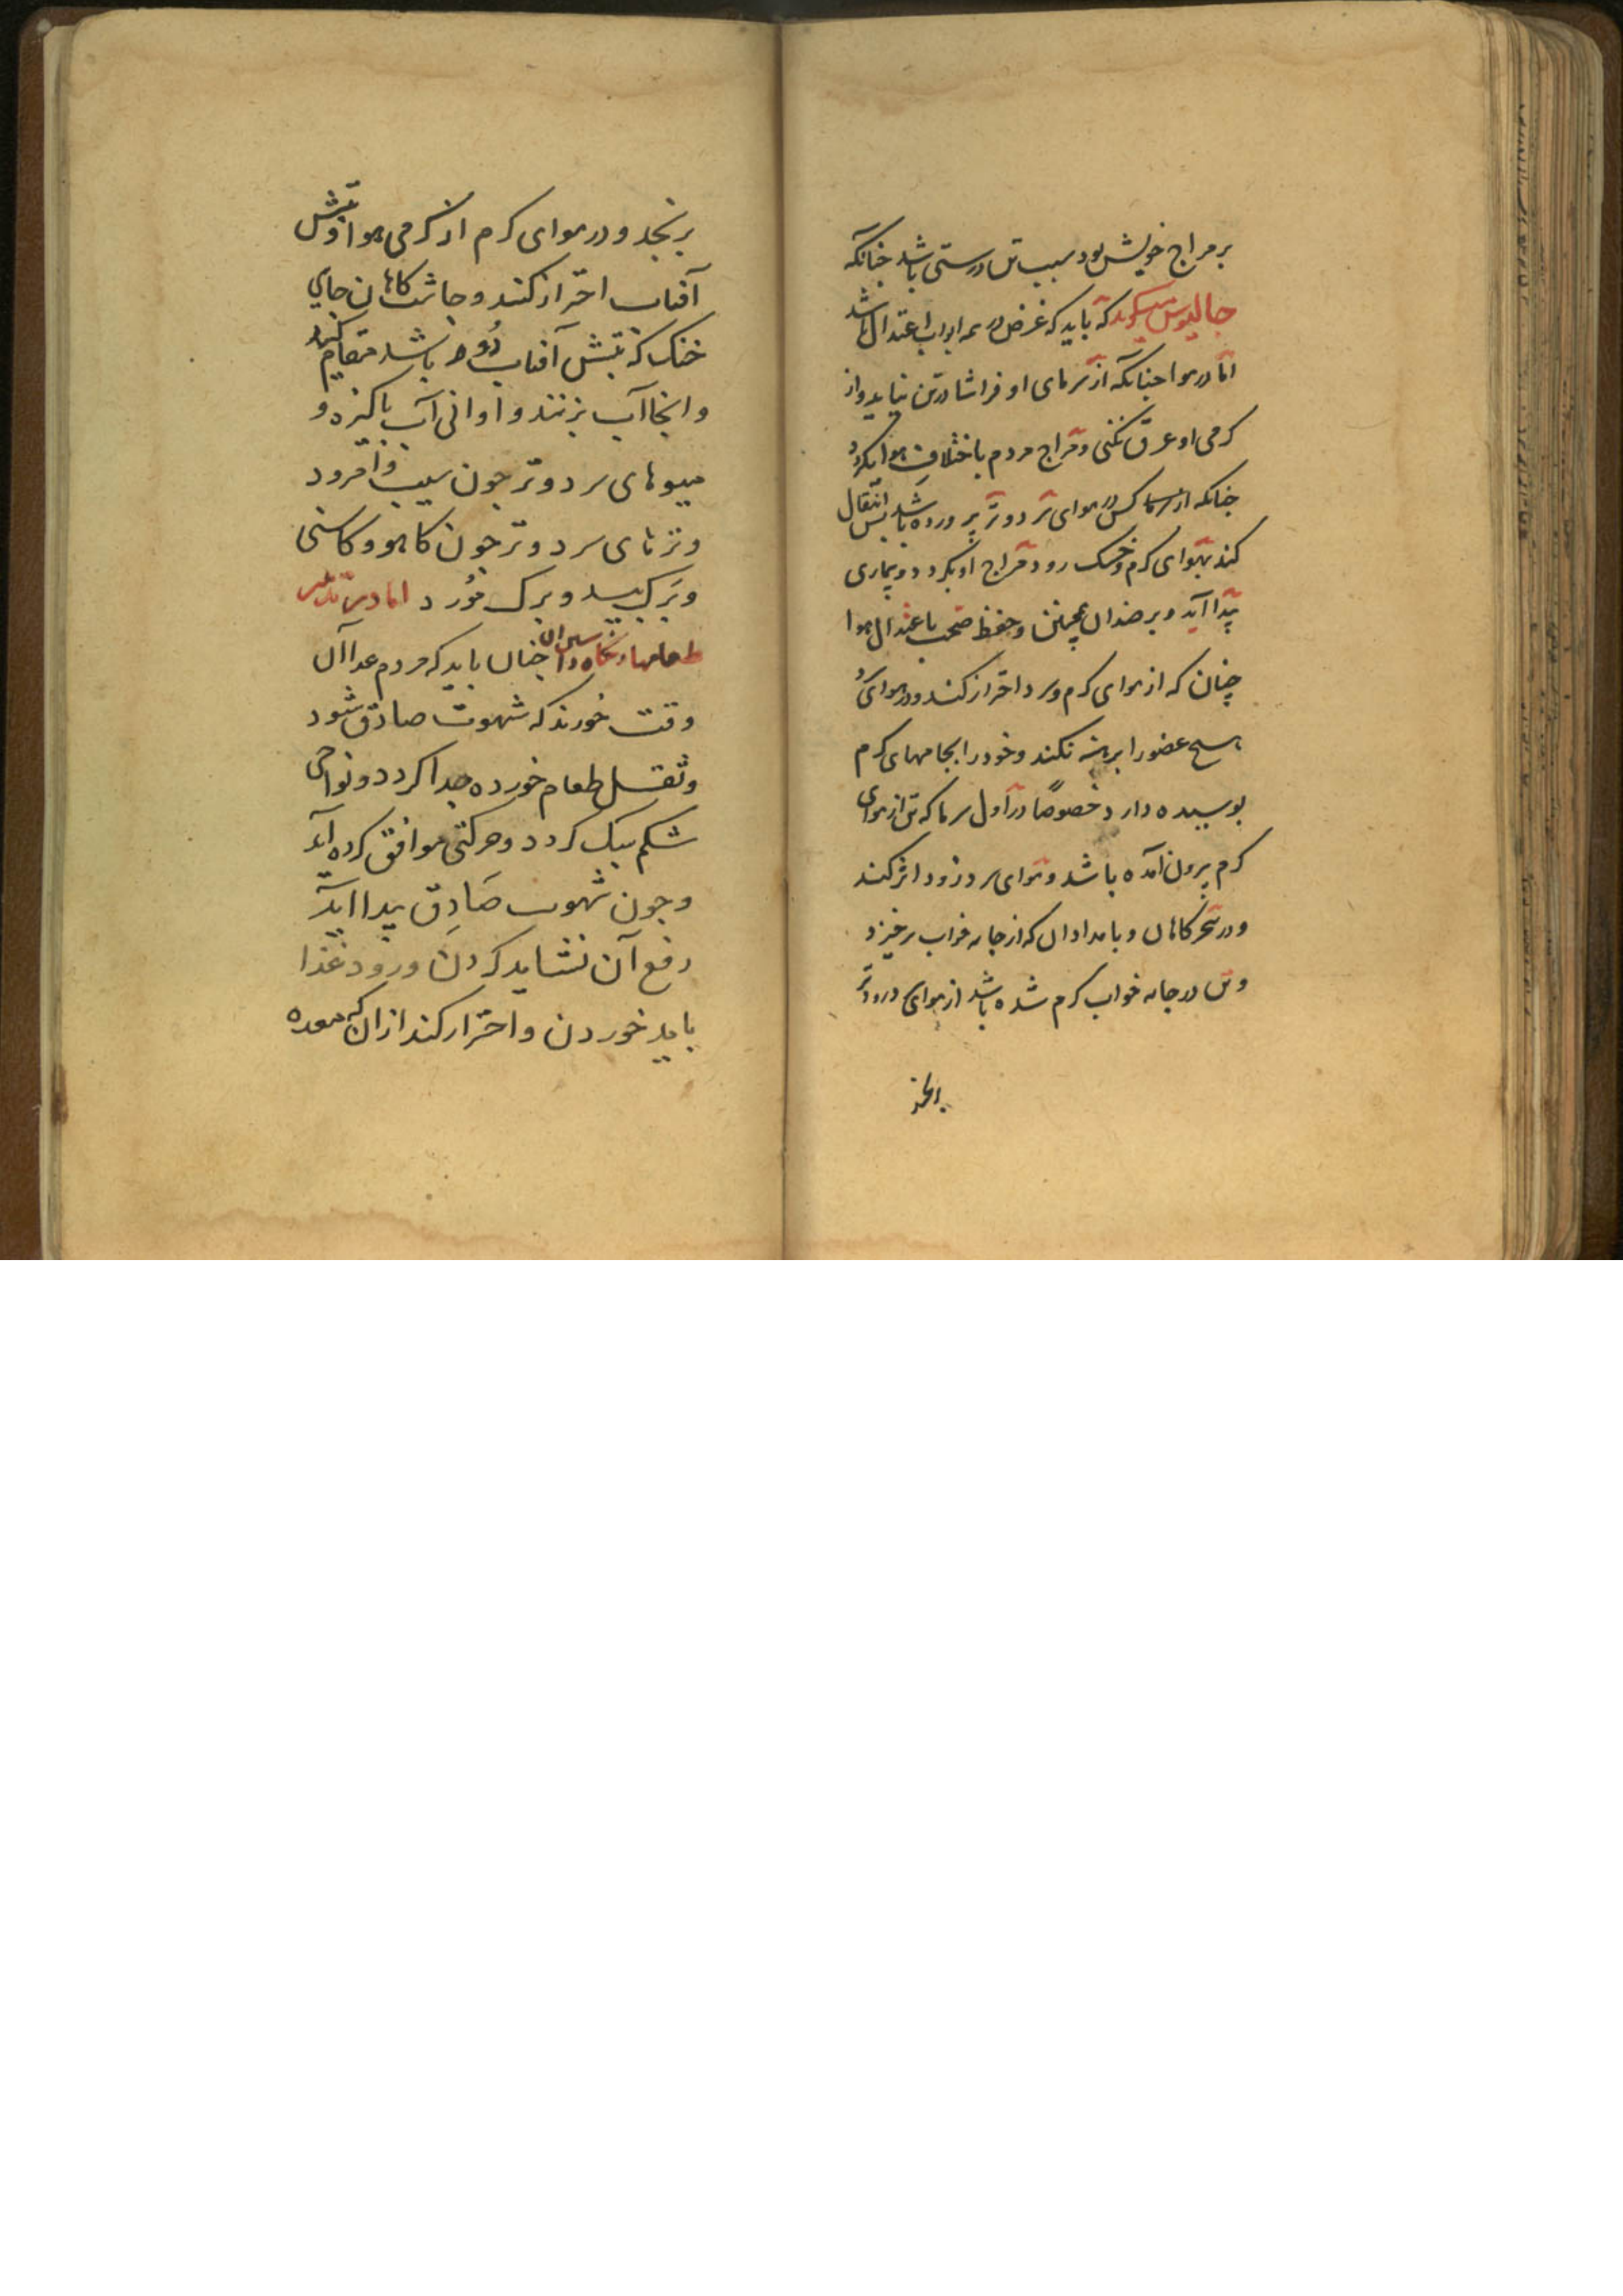 بر مزاج خویش بود سبب تن درستی باشد جنانکه
جالینوس میکوید که باید که غرض در همه ابواب اعتدال باشد
اما در هوا جنانکه از سرمای او فراشا در تن نیاید و از
کرمی او عرق نکنی و مزاج مردم باختلاف هوا بکردد
جنانکه کس در هوای سرد و تر پرورده باشد بس انتقال
کند بهوای کرم و خشک رود مزاج او بکردد و بیماری
پیدا آید و بر ضد آن همچنین و حفظ صحت باعتدال هوا
چنان که از هوای کرم و سرد احتراز کند و در هوای سرد
هیچ عضو را برهنه نکند و خود را بجامهای کرم
بوسیده دارد خصوصًا در اول سرما که تن از هوای
کرم بیرون آمده باشد و هوای سرد زود اثر کند
و در سحرکاهان و بامدادان که از جامه خواب برخیزد
و تن در جامه خواب کرم شده باشد از هوای زودتر
برنجد و در هوای کرم از کرمی هوا و تبش
آفتاب احتراز کند و جاشتکاهان جای
خنک که تبش آفتاب دُور باشد مقام کند
و انجا آب بزنند و اوانی آب باکیزه و
میوهای سرد و تر جون سیب و امرود
و ترهای سرد و تر جون کاهو و کاسنی
و بَرک بید و برک مُورد اما در تدبیر
طعامها چنان باید که مردم غدا آن
وقت خورند که شهوت صادق شود
و ثقل طعام خورده جدا کردد و نواحی
شکم سبک کردد و حرکتی موافق کرده آید
و جون شهوت صَادِق پیدا آید
دفع آن نشاید کردن و زود غذا
باید خوردن و احتراز کند از ان که معده
برنجد